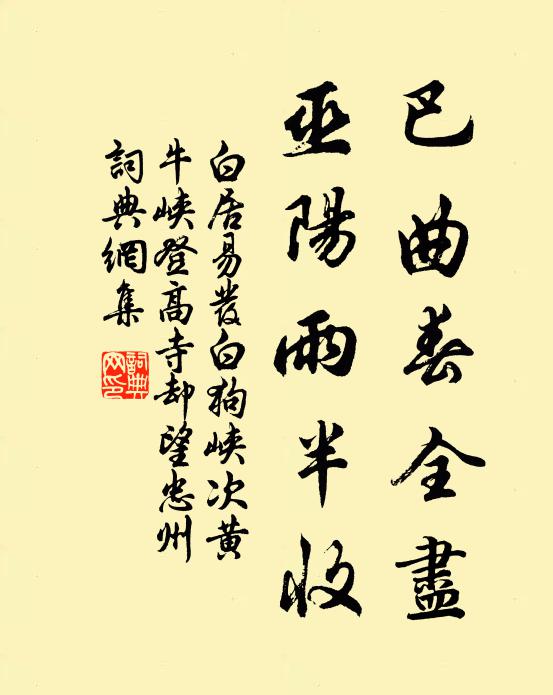 巴曲春全盡
巫陽雨半收
白居易發白狗峽次黃
牛峽登高寺却望忠州
詞典網集
詞典
网印